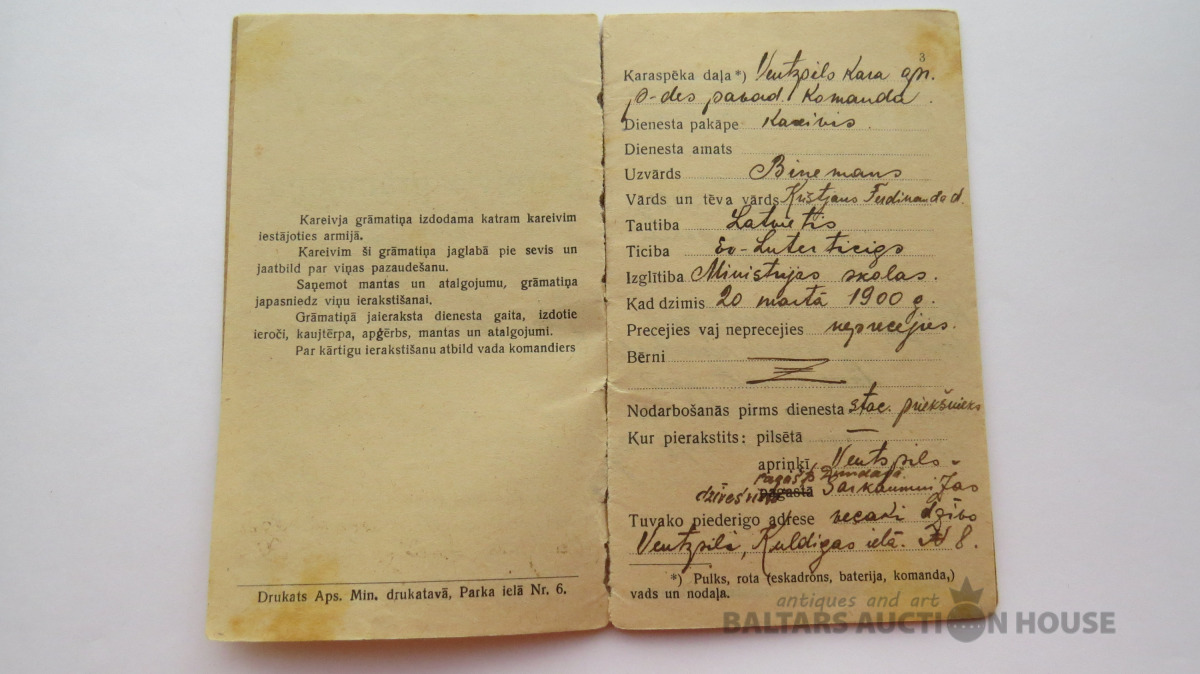 Kareivja grāmatiņa izdodama katram kareivim
iestājoties armijā.
Kareivim ši grāmatiņa jaglabā pie sevis un
jaatbild par viņas pazaudešanu.
Saņemot mantas un atalgojumu, grāmatiņa
japasniedz viņu ierakstišanai.
Grāmatiņā jaieraksta dienesta gaita, izdotie
ieroči, kaujtērpa, apģērbs, mantas un atalgojumi.
Par kārtigu ierakstišanu atbild vada komandiers
Drukats Aps. Min. drukatavā, Parka ielā Nr. 6.
3
Karaspēka daļa*) Ventzpils Kara apr.
p-des pavad. Komanda.
Dienesta pakāpe Kareivis.
Dienesta amats
Uzvārds Binemans
Vārds un tēva vārds Kristjans Ferdinanda d.
Tautiba Latvietis
Ticiba Ev-Luter ticigs
Izglītiba Ministrijas skolas.
Kad dzimis 20 martā 1900 g.
Precejies vaj neprecejies neprecejies.
Bērni
Nodarbošanās pirms dienesta stac. priekšnieks
Kur pierakstits: pilsētā —
apriņķī Ventspils
pagastā
Tuvako piederigo adrese vecaki dzīvo
Ventzpilī, Kuldigas ielā. N 8.
*) Pulks, rota (eskadrons, baterija, komanda,)
vads un nodaļa.
antiques and art
BALTARS AUCTION HOUSE